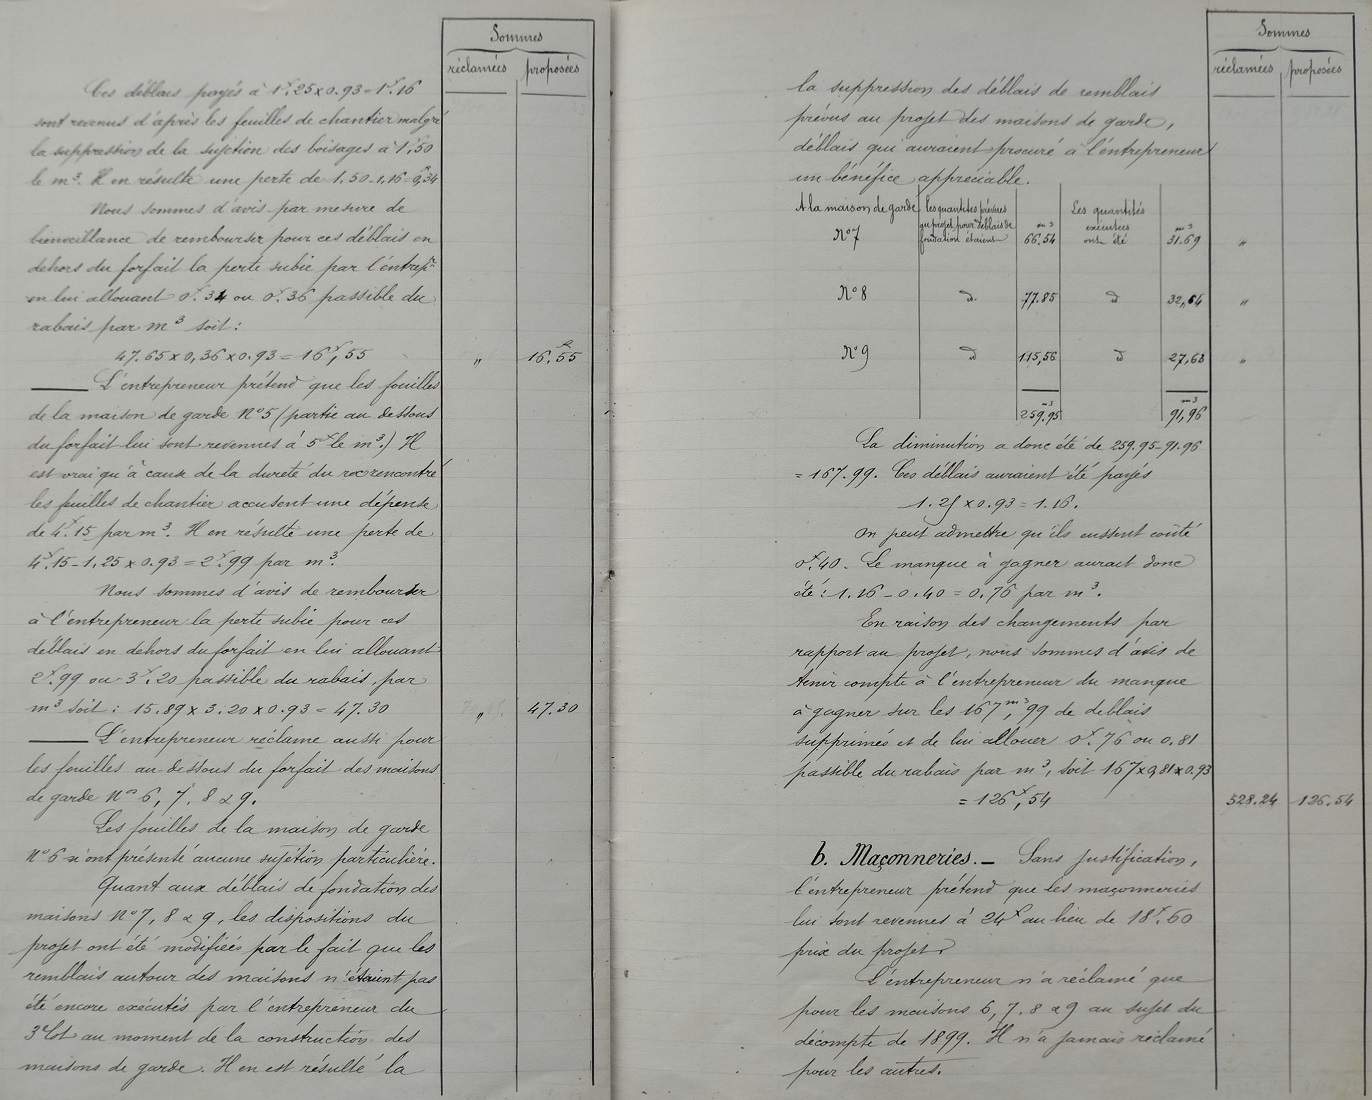 Sommes
réclamées proposées
Ces déblais payés à 1f.25x0.93=1f.16
sont revenus d'après les feuilles de chantier malgré
la suppression de la sujétion des boisages à 1f50
le m3. Il en résulte une perte de 1.50-1,16=0f,34
Nous sommes d'avis par mesure de
bienveillance de rembourser pour ces déblais en
dehors du forfait la perte subie par l'entrepr
en lui allouant 0f.34 ou 0f.36 passible du
rabais par m3 soit:
47.65 x 0,36 x 0.93 = 16f,55 " 16.f55
L'entrepreneur prétend que les fouilles
de la maison de garde N°5 (partie au dessous
du forfait lui sont revenues à 5f le m3.) Il
est vrai qu'à cause de la dureté du roc rencontré
les feuilles de chantier accusent une dépense
de 4f.15 par m3. Il en résulte une perte de
4f.15-1,25 x 0.93 = 2f.99 par m3.
Nous sommes d'avis de rembourser
à l'entrepreneur la perte subie pour ces
déblais en dehors du forfait en lui allouant
2f.99 ou 3f.20 passible du rabais, par
m3 soit: 15.89 x 3.20 x 0.93 = 47.30 " 47.30
L'entrepreneur réclame aussi pour
les fouilles au dessous du forfait des maisons
de garde Nos 6, 7, 8 & 9.
Les fouilles de la maison de garde
N°6 n'ont présenté aucune sujétion particulière.
Quant aux déblais de fondation des
maisons N°7, 8 & 9, les dispositions du
projet ont été modifiées par le fait que les
remblais autour des maisons n'étaient pas
été encore exécutés par l'entrepreneur du
3e lot au moment de la construction des
maisons de garde. Il en est résulté la
Sommes
réclamées proposées
la suppression des déblais de remblais
prévus au projet des maisons de garde,
déblais qui auraient procuré à l'entrepreneur
un bénéfice appréciable.
A la maison de garde N°7 les quantités prévues au projet pour déblais de fondation étaient m3 66,54 Les quantités exécutées ont été m3 31.69 "
N°8 d° 77.85 d° 32,64 "
N°9 d° 115,56 d° 27,63 "
m3 259,95 m3 91,96
La diminution a donc été de 259.95-91.96
= 167.99. Ces déblais auraient été payés
1.25 x 0.93 = 1.16.
On peut admettre qu'ils eussent coûté
0f.40. Le manque à gagner aurait donc
été: 1.16 - 0.40 = 0.76 par m3.
En raison des changements par
rapport au projet, nous sommes d'avis de
tenir compte à l'entrepreneur du manque
à gagner sur les 167m3,99 de déblais
supprimés et de lui allouer 0f.76 ou 0.81
passible du rabais par m3, soit 167x0,81x0.93
= 126f,54 528.24 126.54
b. Maçonneries._ Sans justification,
l'entrepreneur prétend que les maçonneries
lui sont revenues à 24f au lieu de 18f.60
prix du projet.
L'entrepreneur n'a réclamé que
pour les maisons 6, 7, 8 & 9 au sujet du
décompte de 1899. Il n'a jamais réclamé
pour les autres.